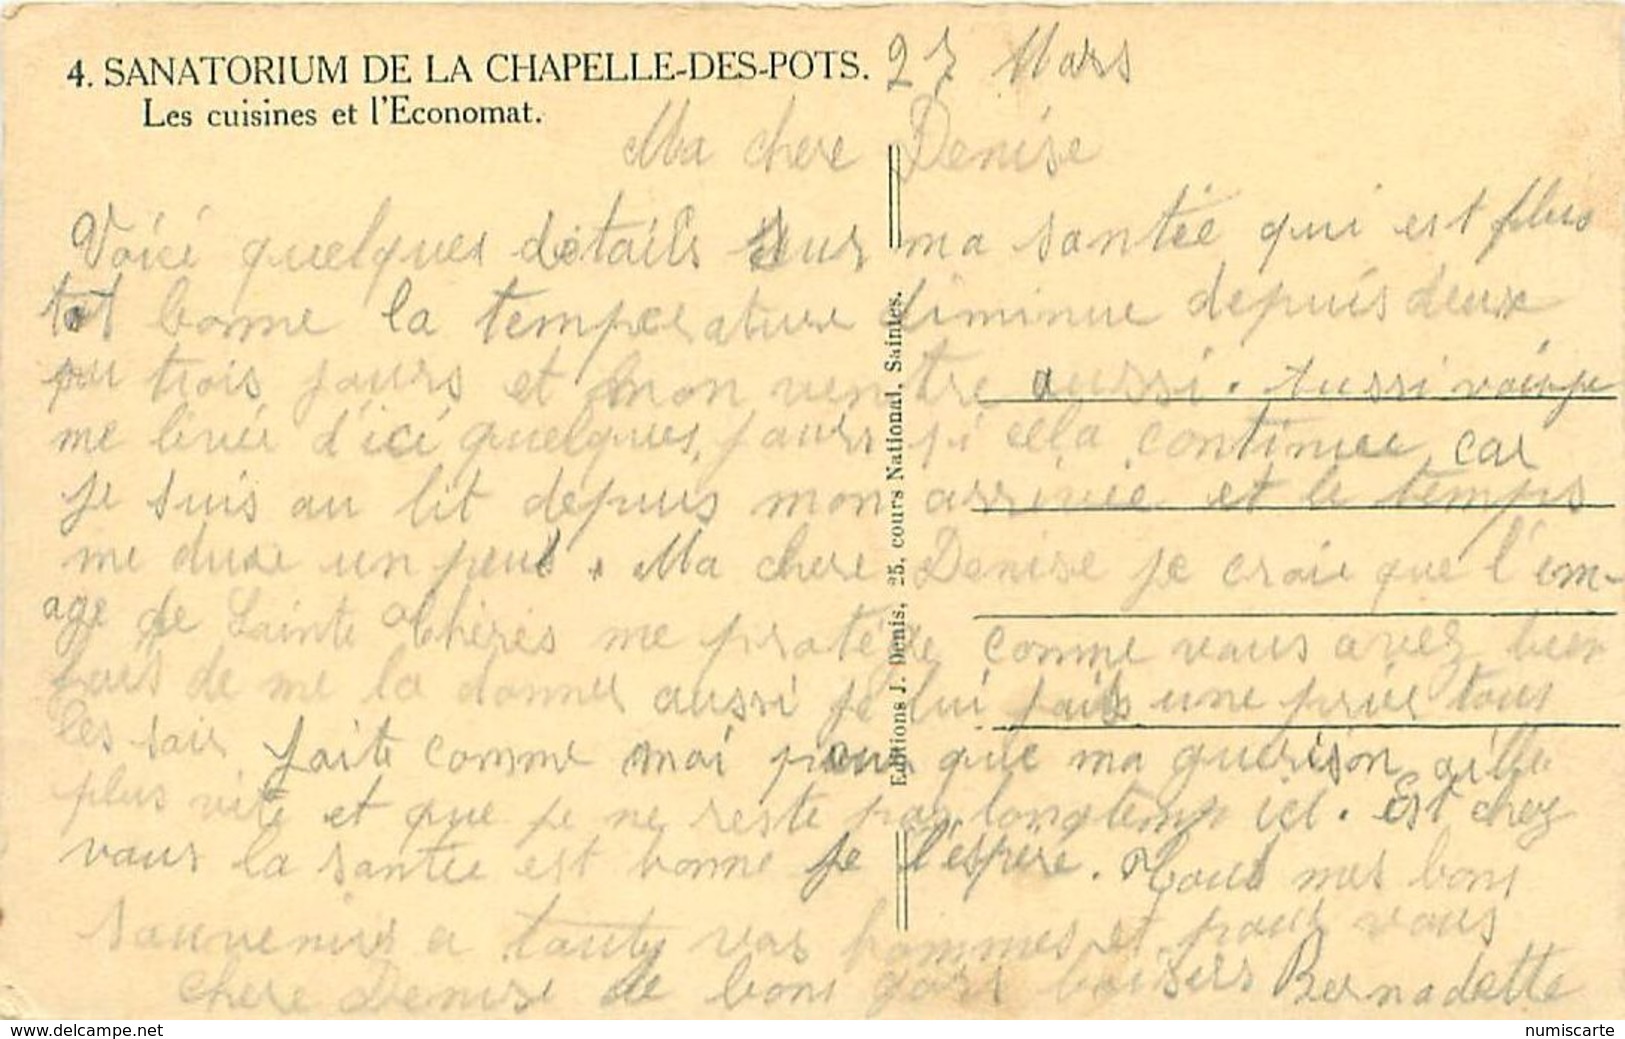 4. SANATORIUM DE LA CHAPELLE-DES-POTS.
Les cuisines et l'Economat.
27 Mars
Ma chere Denise
Voici quelques détails sur ma santée qui est plus
tot bonne la temperature diminue depuis deux
ou trois jours et mon ventre aussi. Aussi vais-je
me levée d'ici quelques jours si cela continue car
je suis au lit depuis mon arrivée et le temps
me dure un peu. Ma chere Denise je croie que l'em-
age de Sainte Thérès me protège comme vous avez bien
fais de me la donner aussi je lui fais une prier tous
les soir faite comme moi pour que ma guerison aille
plus vite et que je ne reste pas longtemps ici. Est chez
vous la santée est bonne je l'espère. Tous mes bons
souvenirs a vos hommes et pour vous
chere Denise de bons gors baisers Bernadette
Editions J. Denis, 25, cours National, Saintes.
www.delcampe.net
numiscarte